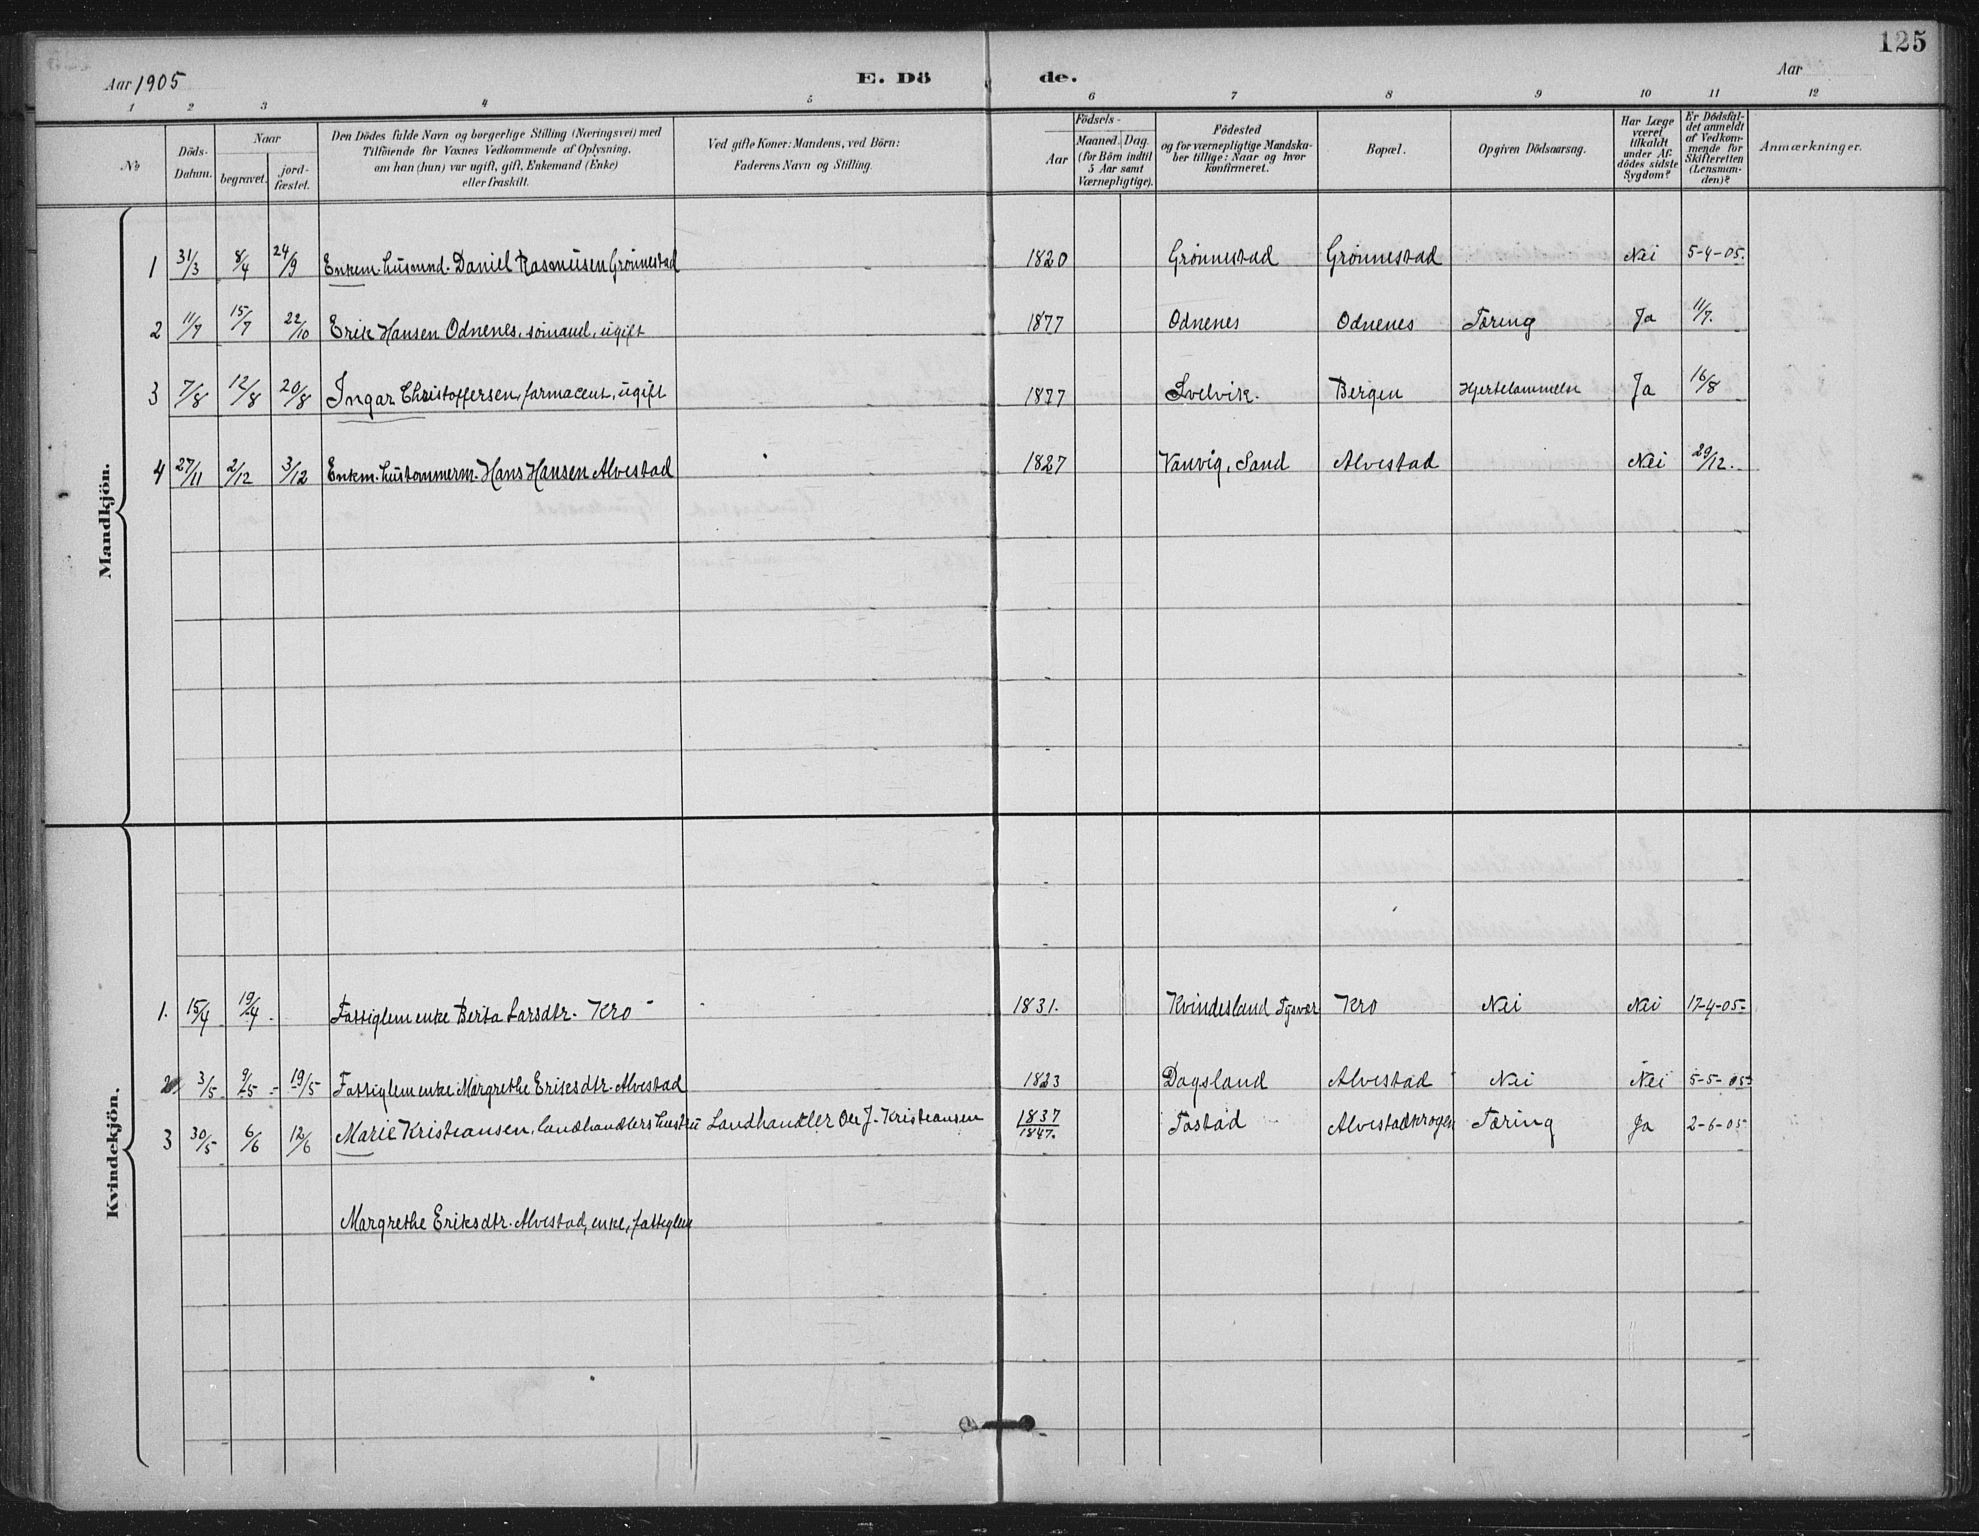 125
Aar 1905 E. Dö de. Aar
1 2 3 4 5 6 7 8 9 10 11 12
No
Döds-Datum.
Naar
begravet.
jord-fæstet.
Den Dödes fulde Navn og borgerlige Stilling (Næringsvei) med
Tilföiende for Voxnes Vedkommende af Oplysning,
om han (hun) var ugift, gift, Enkemand (Enke)
eller fraskilt.
Ved gifte Koner: Mandens, ved Börn:
Faderens Navn og Stilling.
Födsels-
Aar
Maaned. Dag.
(for Börn indtil
5 Aar samt
Værnepligtige).
Födested
og for værnepligtige Mandska-
ber tillige: Naar og hvor
konfirmeret.
Bopæl.
Opgiven Dödsaarsag.
Har Læge
været
tilkaldt
under Af-
dödes sidste
Sygdom?
Er Dödsfal-
det anmeldt
af Vedkom-
mende for
Skifteretten
(Lensman-
den)?
Anmærkninger.
Mandkjön.
1 31/3 8/4 24/9 Enkem. husmnd. Daniel Rasmusen Grönnestad 1820 Grönnestad Grönnestad Nei 5-4-05.
2 11/7 15/7 22/10 Erik Hansen Odnenes, sömand, ugift 1877 Odnenes Odnenes Tæring Ja 11/7.
3 7/8 12/8 20/8 Ingar Christoffersen, farmaceut, ugift 1877 Svelvik. Bergen Hjertelammelse Ja 16/8
4 27/11 2/12 3/12 Enkem. hustømmerm. Hans Hansen Alvestad 1827 Vanvig, Sand Alvestad Nei 29/12.
Kvindekjön.
1. 15/4 19/4 Fattiglem enke Berta Larsdtr. Kro 1831. Kvindesland Tysvær Kro Nei Nei 17-4-05
2 3/5 9/5 19/5 Fattiglem enke Margrethe Eriksdtr. Alvestad 1823 Dagsland Alvestad Nei Nei 5-5-05
3 30/5 6/6 12/6 Marie Kristiansen, landhandlers hustru Landhandler Ole J. Kristiansen 1837/1847. Tostad Alvestadkrogen Tæring Ja 2-6-05
Margrethe Eriksdtr. Alvestad, enke, fattiglem